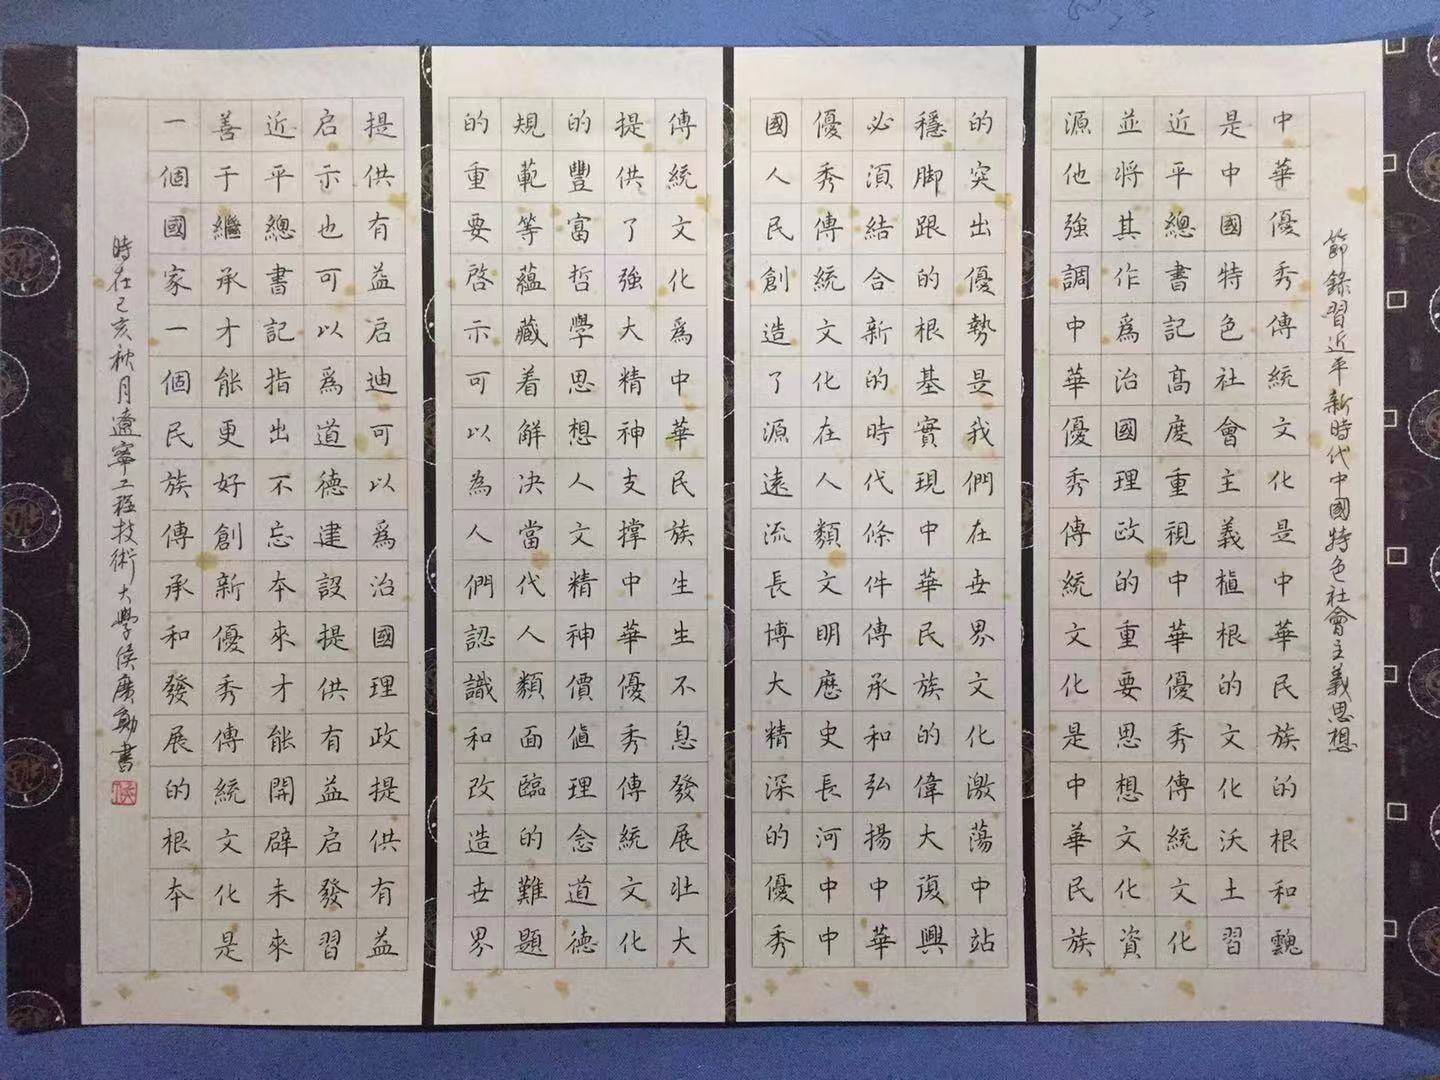 節錄習近平新時代中國特色社會主義思想
中華優秀傳統文化是中華民族的根和魂
是中國特色社會主義植根的文化沃土習
近平總書記高度重視中華優秀傳統文化
並將其作為治國理政的重要思想文化資
源他強調中華優秀傳統文化是中華民族
的突出優勢是我們在世界文化激蕩中站
穩脚跟的根基實現中華民族的偉大復興
必須結合新的時代條件傳承和弘揚中華
優秀傳統文化在人類文明歷史長河中中
國人民創造了源遠流長博大精深的優秀
傳統文化為中華民族生生不息發展壯大
提供了強大精神支撐中華優秀傳統文化
的豐富哲學思想人文精神價值理念道德
規範等蘊藏着解决當代人類面臨的難題
的重要啓示可以為人們認識和改造世界
提供有益启迪可以為治國理政提供有益
启示也可以為道德建設提供有益启發習
近平總書記指出不忘本來才能開辟未來
善于繼承才能更好創新優秀傳統文化是
一個國家一個民族傳承和發展的根本
時在己亥秋月遼寧工程技術大學侯廣勛書
侯